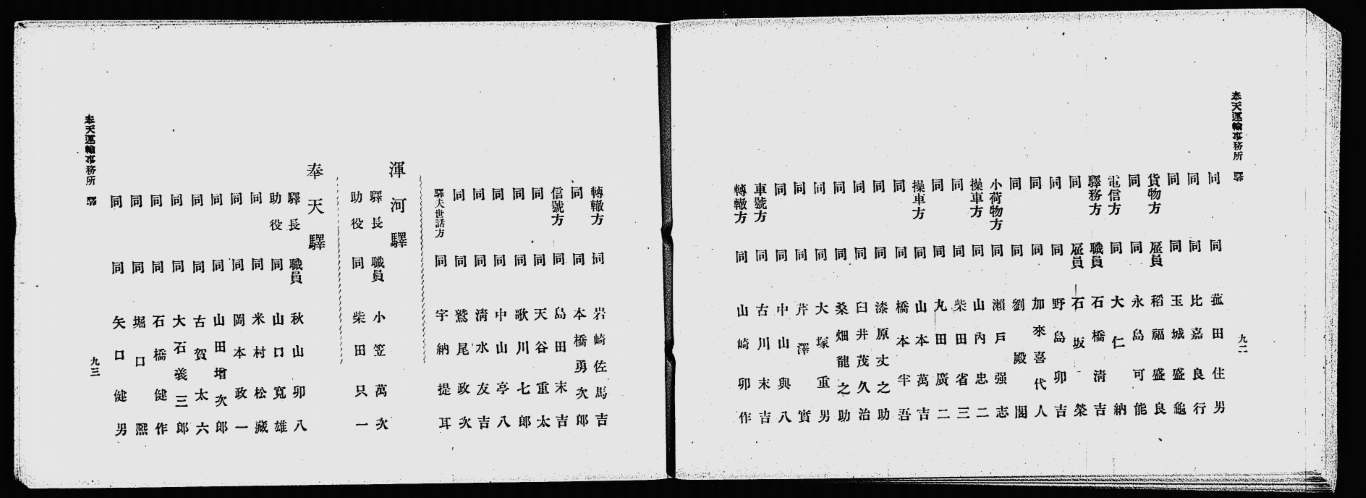 奉天運輸事務所　驛
九二
同　同　菰田住男
同　同　比嘉良行
同　同　玉城盛龜
貨物方　雇員　稻福盛良
同　同　永島可能
電信方　同　大仁納
驛務方　職員　石橋清吉
同　雇員　石坂榮
同　同　野島卯吉
同　同　加來喜代人
同　同　劉殿閣
小荷物方　同　瀨戸强志
操車方　同　山內忠二
同　同　柴田省三
同　同　丸田廣二
操車方　同　山本萬吉
同　同　橋本半吾
同　同　漆原丈之助
同　同　臼井茂久治
同　同　桑畑龍之助
同　同　大塚重男
同　同　芹澤實
同　同　中山與八
車號方　同　古川末吉
轉轍方　同　山崎卯作
轉轍方　同　岩崎佐馬吉
同　同　本橋勇次郎
信號方　同　島田末吉
同　同　天谷重太
同　同　歌川七郎
同　同　中山亭八
同　同　淸水友吉
同　同　鷲尾政次
驛夫世話方　同　宇納提耳
渾河驛
驛長　職員　小笠萬次
助役　同　柴田只一
奉天驛
驛長　職員　秋山卯八
助役　同　山口寬雄
同　同　米村松藏
同　同　岡本政一
同　同　山田增次郎
同　同　古賀太六
同　同　大石義三郎
同　同　石橋健作
同　同　堀口熙
同　同　矢口健男
奉天運輸事務所　驛
九三